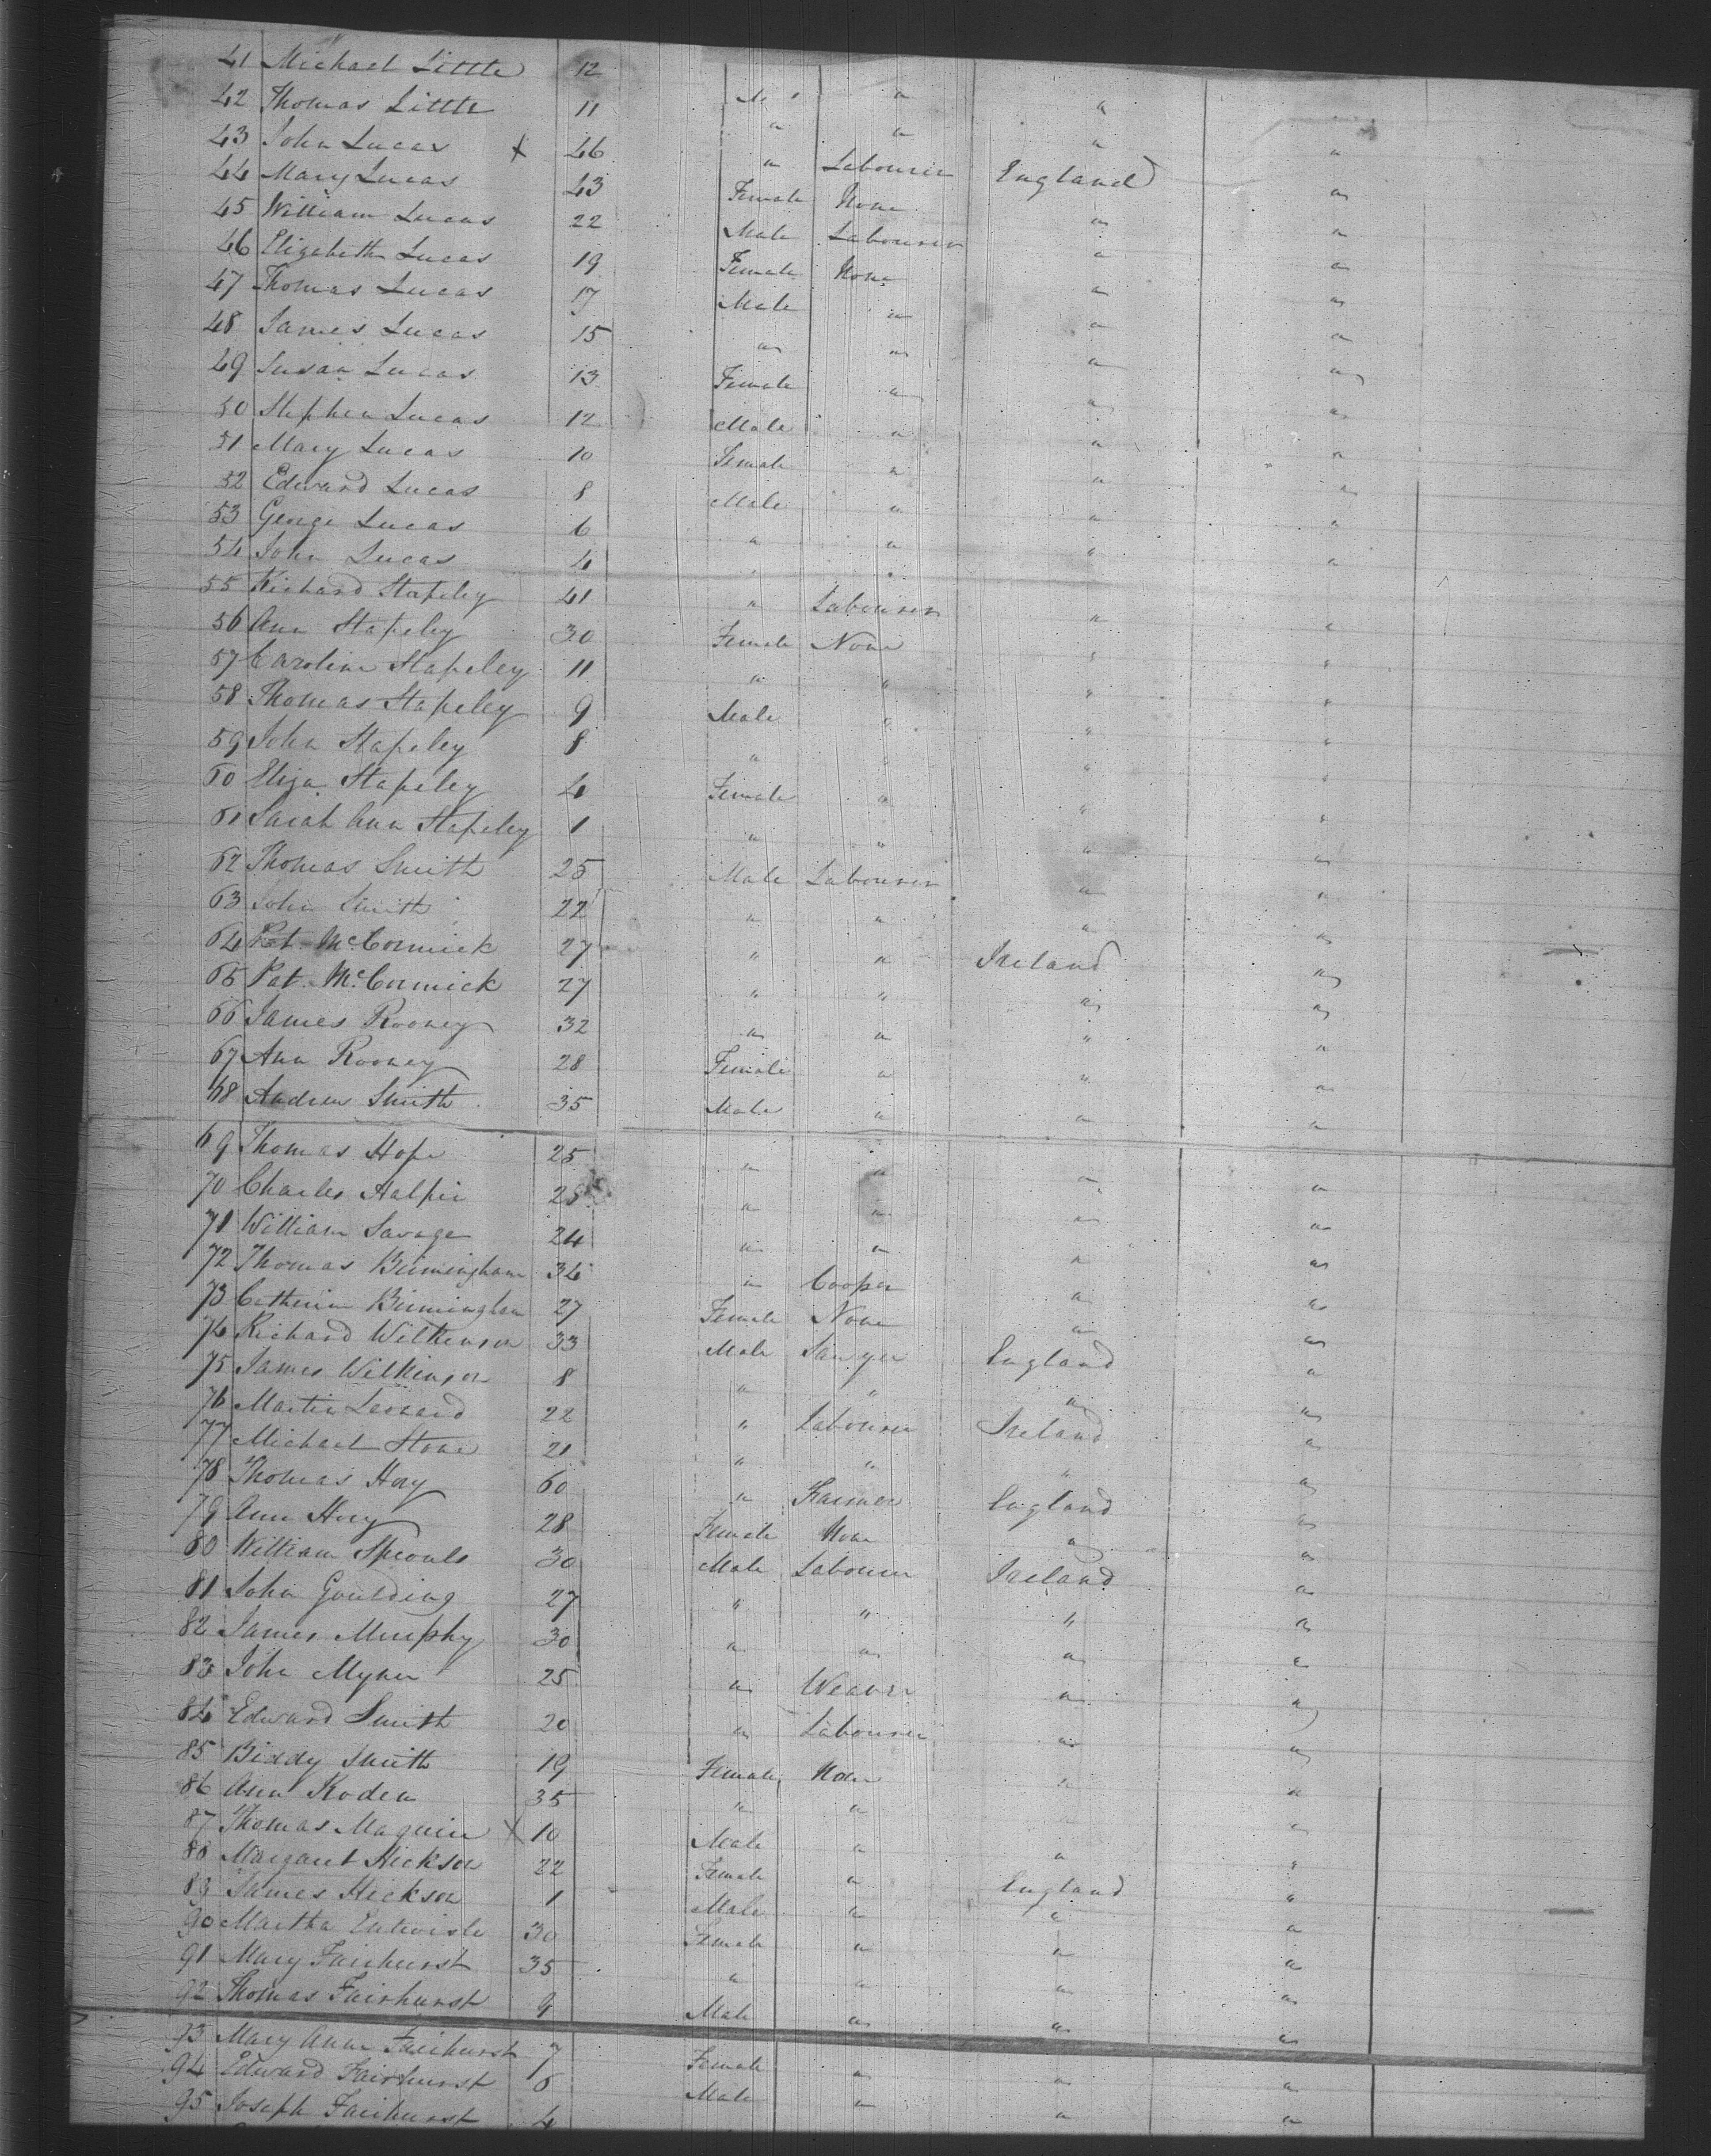 41 Michael Little 12 M " " "
42 Thomas Little 11 " " " "
43 John Lucas x 46 " Labourer England "
44 Mary Lucas 43 Female None " "
45 William Lucas 22 Male Labourer " "
46 Elizabeth Lucas 19 Female None " "
47 Thomas Lucas 17 Male " " "
48 James Lucas 15 " " " "
49 Susan Lucas 13 Female " " "
50 Stephen Lucas 12 Male " " "
51 Mary Lucas 10 Female " " "
52 Edward Lucas 8 Male " " "
53 George Lucas 6 " " " "
54 John Lucas 4 " " " "
55 Richard Stapeley 41 " Labourer " "
56 Ann Stapeley 30 Female None " "
57 Caroline Stapeley 11 " " " "
58 Thomas Stapeley 9 Male " " "
59 John Stapeley 8 " " " "
60 Eliza Stapeley 4 Female " " "
61 Sarah Ann Stapeley 1 " " " "
62 Thomas Smith 25 Male Labourer " "
63 John Smith 22 " " " "
64 Pat. McCormick 27 " " Ireland "
65 Pat. McCormick 27 " " " "
66 James Rooney 32 " " " "
67 Ann Rooney 28 Female " " "
68 Andrew Smith 35 Male " " "
69 Thomas Hope 25 " " " "
70 Charles Halpin 25 " " " "
71 William Savage 24 " " " "
72 Thomas Birmingham 34 " Cooper " "
73 Catherine Birmingham 27 Female None " "
74 Richard Wilkinson 33 Male Sawyer England "
75 James Wilkinson 8 " " " "
76 Martin Leonard 22 " Labourer Ireland "
77 Michael Stone 21 " " " "
78 Thomas Hoy 60 " Farmer England "
79 Ann Hoy 28 Female None " "
80 William Sprouls 30 Male Labourer Ireland "
81 John Goulding 27 " " " "
82 James Murphy 30 " " " "
83 John Myner 25 " Weaver " "
84 Edward Smith 20 " Labourer " "
85 Biddy Smith 19 Female None " "
86 Ann Roden 35 " " " "
87 Thomas Maguire x 10 Male " " "
88 Margaret Hickson 22 Female " England "
89 James Hickson 1 Male " " "
90 Martha Entwisle 30 Female " " "
91 Mary Fairhurst 35 " " " "
92 Thomas Fairhurst 9 Male " " "
93 Mary Ann Fairhurst 7 Female " " "
94 Edward Fairhurst 6 Male " " "
95 Joseph Fairhurst 4 " "